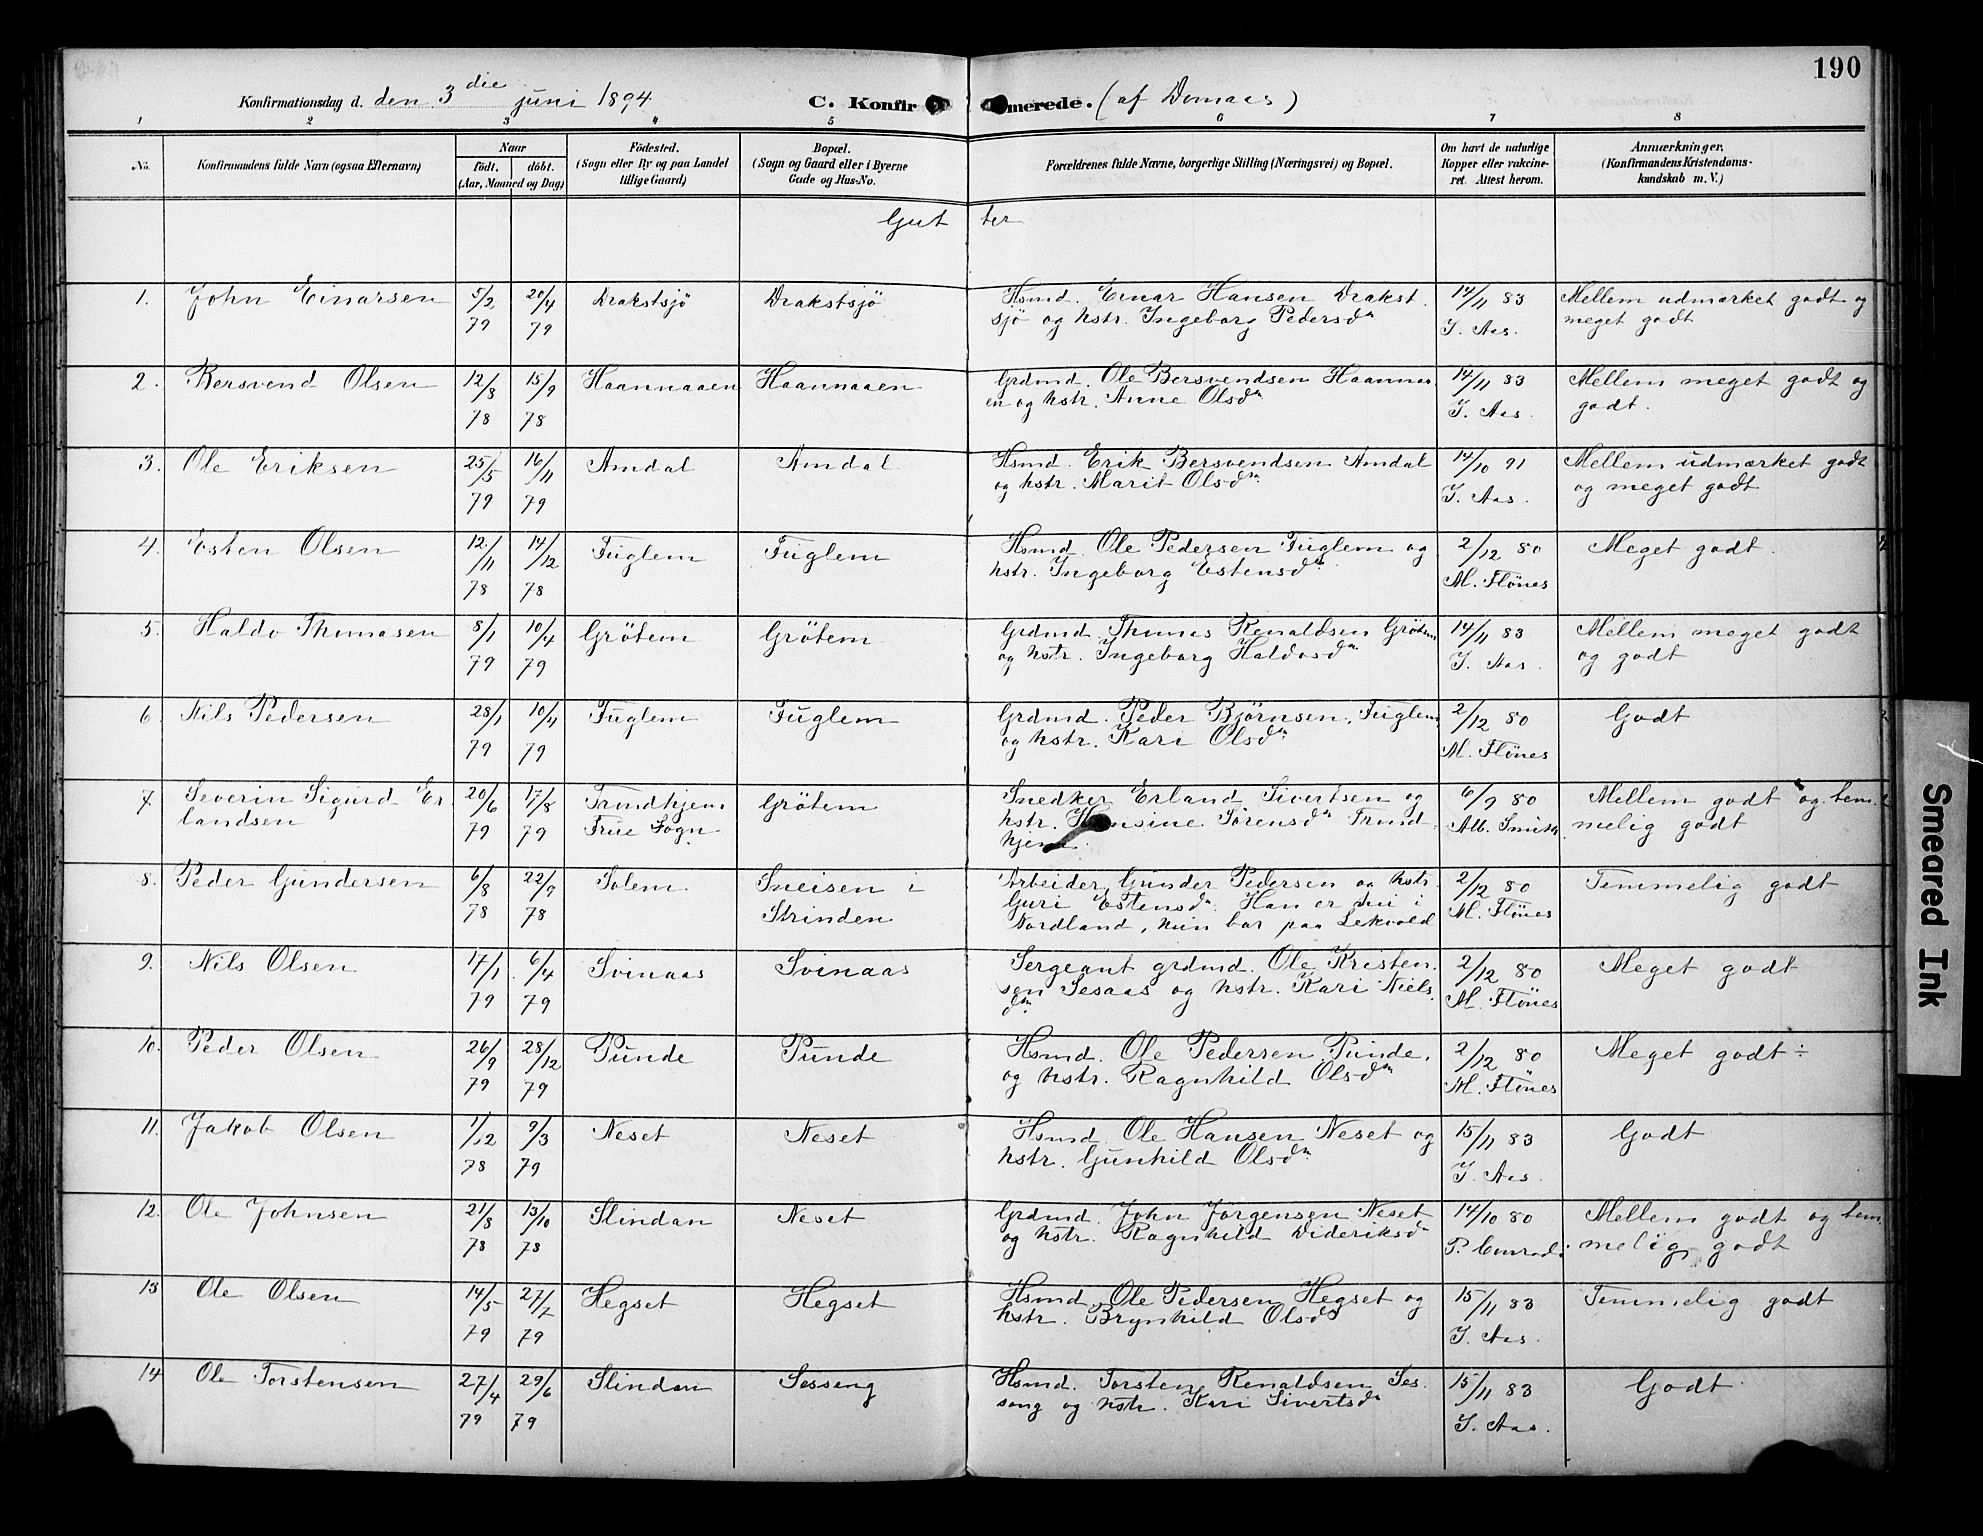 190
Konfirmationsdag d. den 3die juni 1894 C. Konfirmerede. (af Domaas)
1 2 3 4 5 6 7 8
No. Konfirmandens fulde Navn (ogsaa Efternavn) Naar födt, döbt. (Aar, Maaned og Dag) Födested. (Sogn eller By og paa Landet tillige Gaard) Bopæl. (Sogn og Gaard eller i Byerne Gade og Hus-No. Forældrenes fulde Navne, borgerlige Stilling (Næringsvei) og Bopæl. Om havt de naturlige Kopper eller vakcineret. Attest herom. Anmærkninger. (Konfirmandens Kristendomskundskab m. V.)
Gutter
1. John Einarsen 5/2 79 20/4 79 Drakstsjö Drakstsjö Hsmd. Einar Hansen Drakst. 14/11 83 Mellem udmærket godt og
sjö og hstr. Ingeborg Pedersdn J. Aas. meget godt
2. Bersvend Olsen 12/8 78 15/9 78 Haannaaen Haannaaen Grdmd. Ole Bersvendsen Haannaa 14/11 83 Mellem meget godt og
en og hstr. Anne Olsdn J. Aas. godt.
3. Ole Eriksen 25/5 79 16/11 79 Amdal Amdal Hsmd. Erik Bersvendsen Amdal 14/10 91 Mellem udmærket godt
og hstr. Marit Olsdn. J. Aas. og meget godt
4. Esten Olsen 12/11 78 14/12 78 Fuglem Fuglem Hsmd. Ole Pedersen Fuglem og 2/12 80 Meget godt.
hstr. Ingeborg Estensdn. M. Flönes
5. Haldo Thomasen 8/1 79 10/4 79 Grötem Grötem Grdmd. Thomas Renaldsen Grötem 14/11 83 Mellem meget godt
og hstr. Ingeborg Haldosdn J. Aas. og godt
6. Nils Pedersen 28/1 79 10/4 79 Fuglem Fuglem Grdmd. Peder Bjørnsen, Fuglem 2/12 80 Godt
og hstr. Kari Olsdn. M. Flönes
7. Severin Sigurd Er- 20/6 79 17/8 79 Trondhjems Grötem Snedker Erland Sivertsen og 6/9 80 Mellem godt og tem-
landsen Frue Sogn hstr. Hansine Sörensdn Trond- Alb. Smith melig godt
hjem.
8. Peder Gundersen 6/8 78 22/9 78 Solem. Sneisen i Arbeider Gunder Pedersen og hstr. 2/12 80 Temmelig godt
Strinden Guri Estensdn. Han er nu i M. Flönes
Nordland, hun bor paa Lekvold
9. Nils Olsen 17/1 79 6/4 79 Svinaas Svinaas Sergeant grdmd. Ole Kristen- 2/12 80 Meget godt
sen Sesaas og hstr. Kari Niels M. Flönes
dn.
10. Peder Olsen 26/9 79 28/12 79 Punde Punde Hsmd. Ole Pedersen Punde, 2/12 80 Meget godt ÷
og hstr. Ragnhild Olsdn M. Flönes
11. Jakob Olsen 1/12 78 9/3 79 Neset Neset Hsmd. Ole Hansen Neset og 15/11 83 Godt
hstr. Gunhild Olsdn. J. Aas.
12. Ole Johnsen 21/8 78 13/10 78 Slindan Neset Grdmd. John Jörgensen Neset 14/10 80 Mellem godt og tem-
og hstr. Ragnhild Dideriksdn P. melig godt
13 Ole Olsen 14/5 79 27/7 79 Hegset Hegset Hsmd. Ole Pedersen Hegset og 15/11 83 Temmelig godt
hstr. Brynhild Olsdn J. Aas.
14 Ole Torstensen 27/4 79 29/6 79 Slindan Sesseng Hsmd. Torsten Renaldsen Ses- 15/11 83 Godt
seng og hstr. Kari Sivertsdn J. Aas.
Smeared Ink